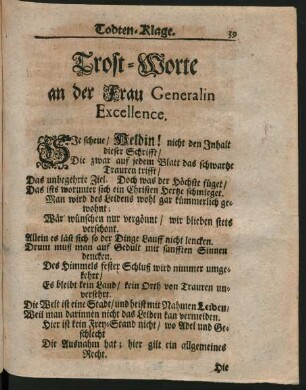 Todten-Klage. 39
Trost-Worte
an der Frau Generalin
Excellence.
SIe scheue/ Heldin! nicht den Inhalt
dieser Schrifft/
Die zwar auf jedem Blatt das schwartze
Trauren trifft/
Das unbegehrte Ziel. Doch was der Höchste füget/
Das ists worunter sich ein Christen Hertze schmieget.
Man wird des Leidens wohl gar kümmerlich ge-
wohnt;
Wär wünschen nur vergönnt/ wir blieben stets
verschont.
Allein es läst sich so der Dinge Lauff nicht lencken.
Drum must man auf Gedult mit sanfften Sinnen
dencken.
Des Himmels fester Schluß wird nimmer umge-
kehrt/
Es bleibt kein Land/ kein Orth von Trauren un-
versehrt.
Die Welt ist eine Stadt/ und heist mit Nahmen Leiden/
Weil man darinnen nicht das Leiden kan vermeiden.
Hier ist kein Frey-Stand nicht/ wo Adel und Ge-
schlecht
Die Ausnahm hat; hier gilt ein allgemeines
Recht.
Die